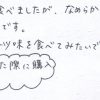 食べましたが、なめらか
です。
ツ味を食べてみたいで
た際に購入